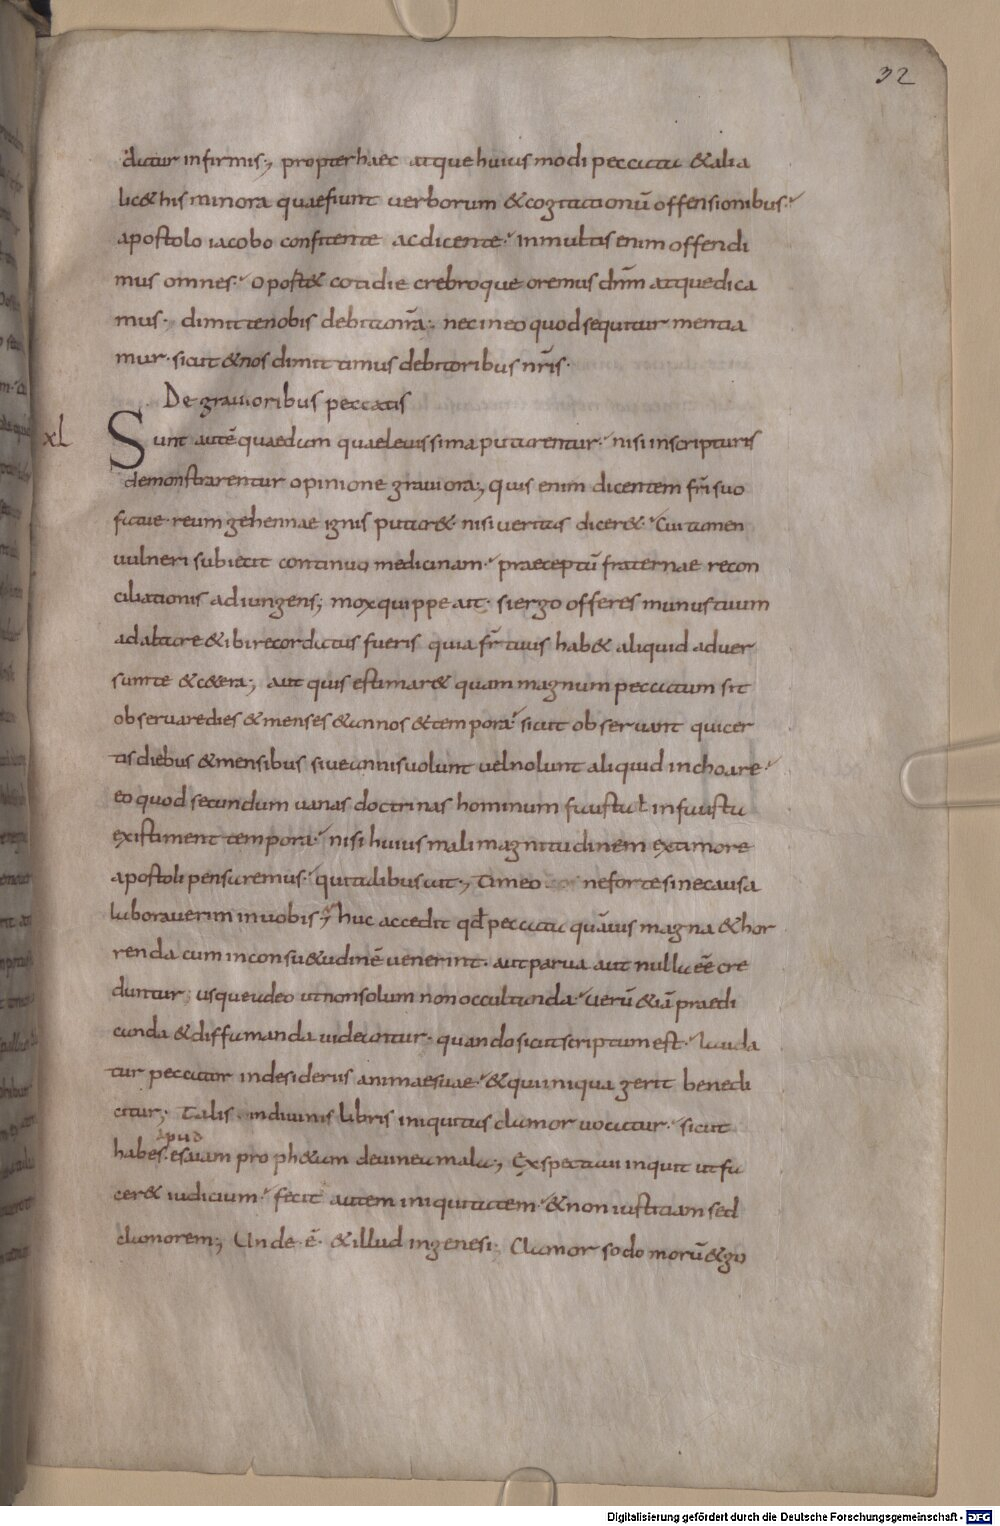 32
datur infirmis; propter haec atque huius modi peccata & alia
lic& his minora quae fiunt verborum & cogitationū offensionibus
apostolo iacobo confitente ac dicente. In multis enim offendi
mus omnes. oport& cotidie crebroque oremus dn̄m atque dica
mus; dimitte nobis debita nr̄a. nec in eo quod sequitur mentia
mur. sicut & nos dimittimus debitoribus nr̄is.
De gravioribus peccatis
xl Sunt autē quaedam quae levissima putarentur. nisi in scripturis
demonstrarentur opinione graviora; quis enim dicentem fr̄i suo
fatue reum gehennae ignis putar& nisi veritas dicer&. Cui tamen
vulneri subiecit continuo medicinam. praeceptū fraternae recon
ciliationis adiungens; mox quippe ait. si ergo offeres munus tuum
ad altare & ibi recordatus fueris quia fr̄ tuus hab& aliquid adver
sum te & c&era; aut quis estimar& quam magnum peccatum sit
observare dies & menses & annos & tempora. sicut observant qui cer
tis diebus & mensibus sive annis volunt vel nolunt aliquid inchoare
eo quod secundum vanas doctrinas hominum fausta ł infausta
existiment tempora. nisi huius mali magnitudinem ex timore
apostoli pensaremus. qui talibus ait; Timeo ne forte sine causa
laboraverim in vobis; huc accedit qđ peccata quāvis magna & hor
renda cum in consu&udinē venerint. aut parva aut nulla eē cre
duntur; usque adeo ut non solum non occultanda. verū & iā praedi
canda & diffamanda videantur. quando sicut scriptum est. lauda
tur peccator in desideriis animae suae. & qui iniqua gerit benedi
citur; Talis in divinis libris iniquitas clamor vocatur. sicut
apud
habes. esaiam proph&am de vinea mala; Exspectavi inquit ut fa
cer& iudicium. fecit autem iniquitatem. & non iustitiam sed
clamorem; Unde ē. & illud in genesi; Clamor sodomorū & go
Digitalisierung gefördert durch die Deutsche Forschungsgemeinschaft - DFG